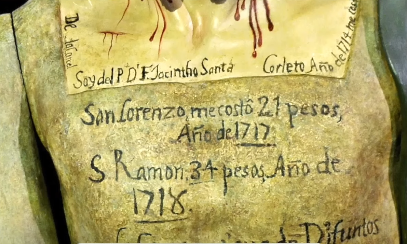 Soy del P D F Jacintho Santa Corleto Año de 1714 me
San Lorenzo, me costó 21 pesos,
Año de 1717.
S. Ramon, 34 pesos, Año de
1718.
de Difuntos